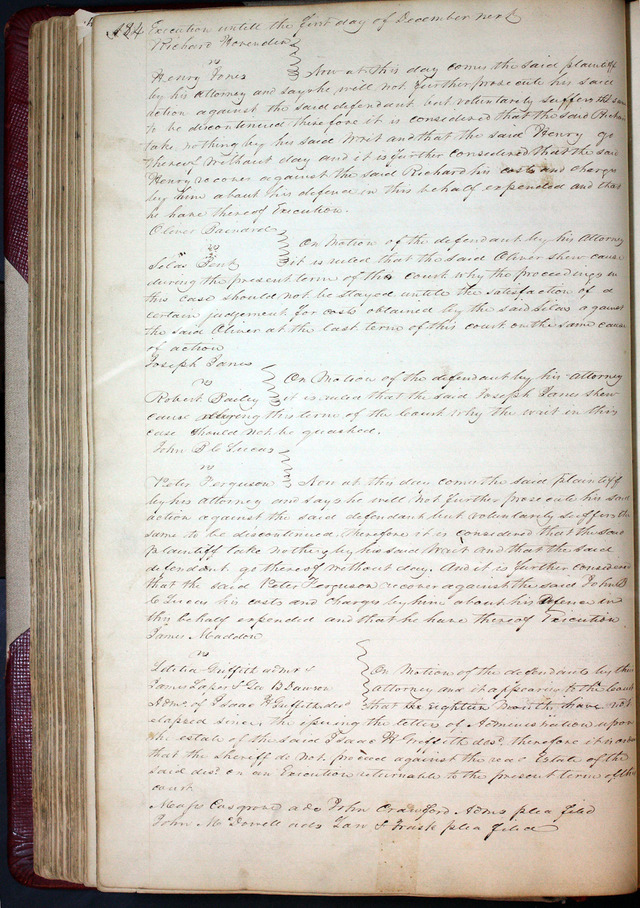 124 Execution untill the first day of December next
Richard
vs
Henry Jones } Now at this day comes the said plaintiff
by his attorney and says he will not further prosecute his said
action against the said defendant but voluntarily suffers the same
to be discontinued therefore it is considered that the said Richard
take nothing by his said Writ and that the said Henry go
thereof without day and it is further considered that the said
Henry recover against the said Richard his costs and charges
by him about his defence in this behalf expended and that
he have thereof Execution.
Oliver
vs
Silas Bent } On Motion of the defendant by his Attorney
it is ruled that the said Oliver shew cause
during the present term of this court why the proceedings in
this case should not be stayed untill the satisfaction of a
certain judgement for cost obtained by the said Silas against
the said Oliver at the last term of this court on the same cause
of action
Joseph Janes
vs
Robert Baily } On Motion of the defendant by his Attorney
it is ruled that the said Joseph Janes shew
cause during this term of the Court why the writ in this
case should not be quashed.
John B C Lucas
vs
Peter Ferguson } Now at this day comes the said Plaintiff
by his attorney and says he will not further prosecute his said
action against the said defendant but voluntarily suffers the
same to be discontinued, therefore it is considered that the said
Plaintiff take nothing by his said Writ and that the said
defendant go thereof without day. And it is further considered
that the said Peter Ferguson recover against the said John B
C Lucas his costs and charges by him about his defence in
this behalf expended and that he have thereof Execution
James Maddon
vs
Letitia Griffith admx &
James & Geo B Dawson
Admrs of Isaac H Griffith decd } On Motion of the defendants by their
attorney and it appearing to the Court
that the Eighteen Months have not
elapsed since the issuing the letters of Administration upon
the estate of the said Isaac H Griffith decd. therefore it is ordered
that the Sheriff do not proceed against the real Estate of the
said decd. on an Execution returnable to the present term of this
court.
ads John Crawford Adms plea filed
John McDonell ads Law & Trask plea filed